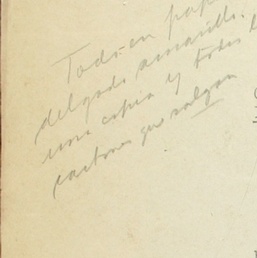 Todo en pap
delgado amarillo.
una copia y todos l
cartones que salgan